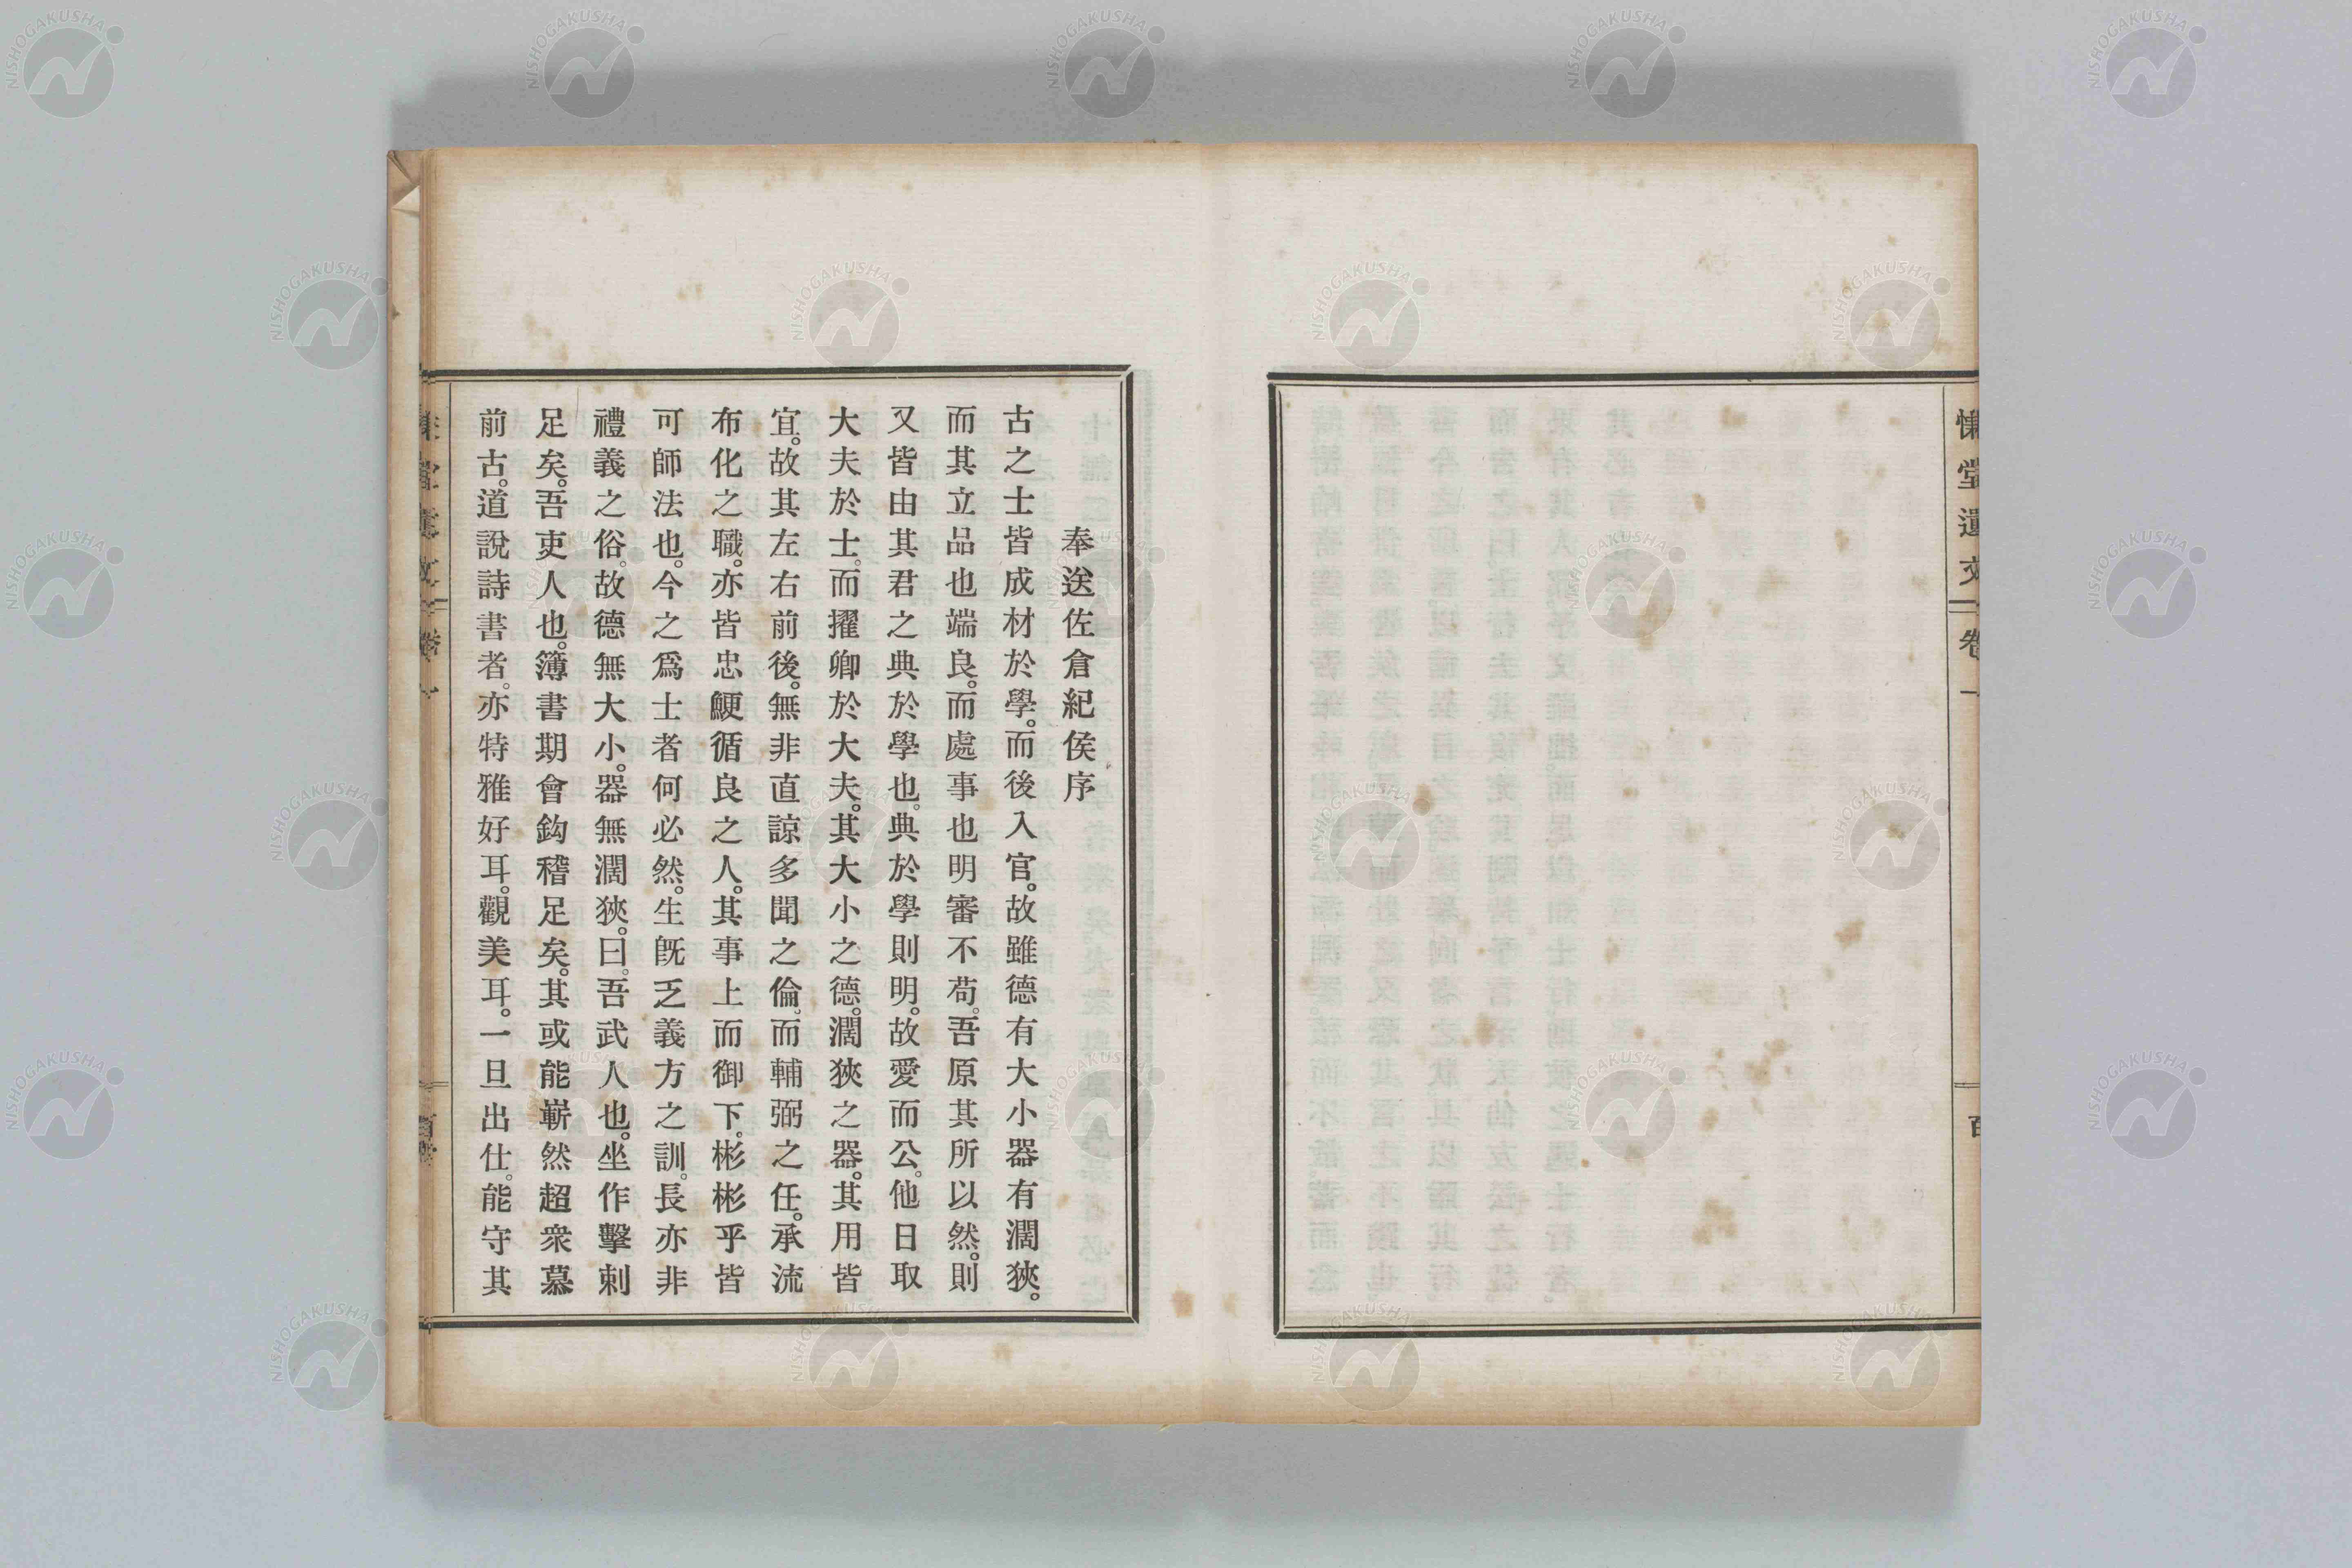 慊堂遺文
卷一
奉送佐倉紀侯序
古之士皆成材於學。而後入官。故雖德有大小器有濶狹。
而其立品也端良。而處事也明審不苟。吾原其所以然。則
又皆由其君之典於學也。典於學則明。故愛而公。他日取
大夫於士。而擢卿於大夫。其大小之德。濶狹之器。其用皆
宜。故其左右前後。無非直諒多聞之倫。而輔弼之任。承流
布化之職。亦皆忠鯁循良之人。其事上而御下。彬彬乎皆
可師法也。今之爲士者何必然。生旣乏義方之訓。長亦非
禮義之俗。故德無大小。器無濶狹。曰。吾武人也。坐作擊刺
足矣。吾吏人也。簿書期會鈎稽足矣。其或能嶄然超衆慕
前古。道說詩書者。亦特雅好耳。觀美耳。一旦出仕。能守其
NISHOGAKUSHA